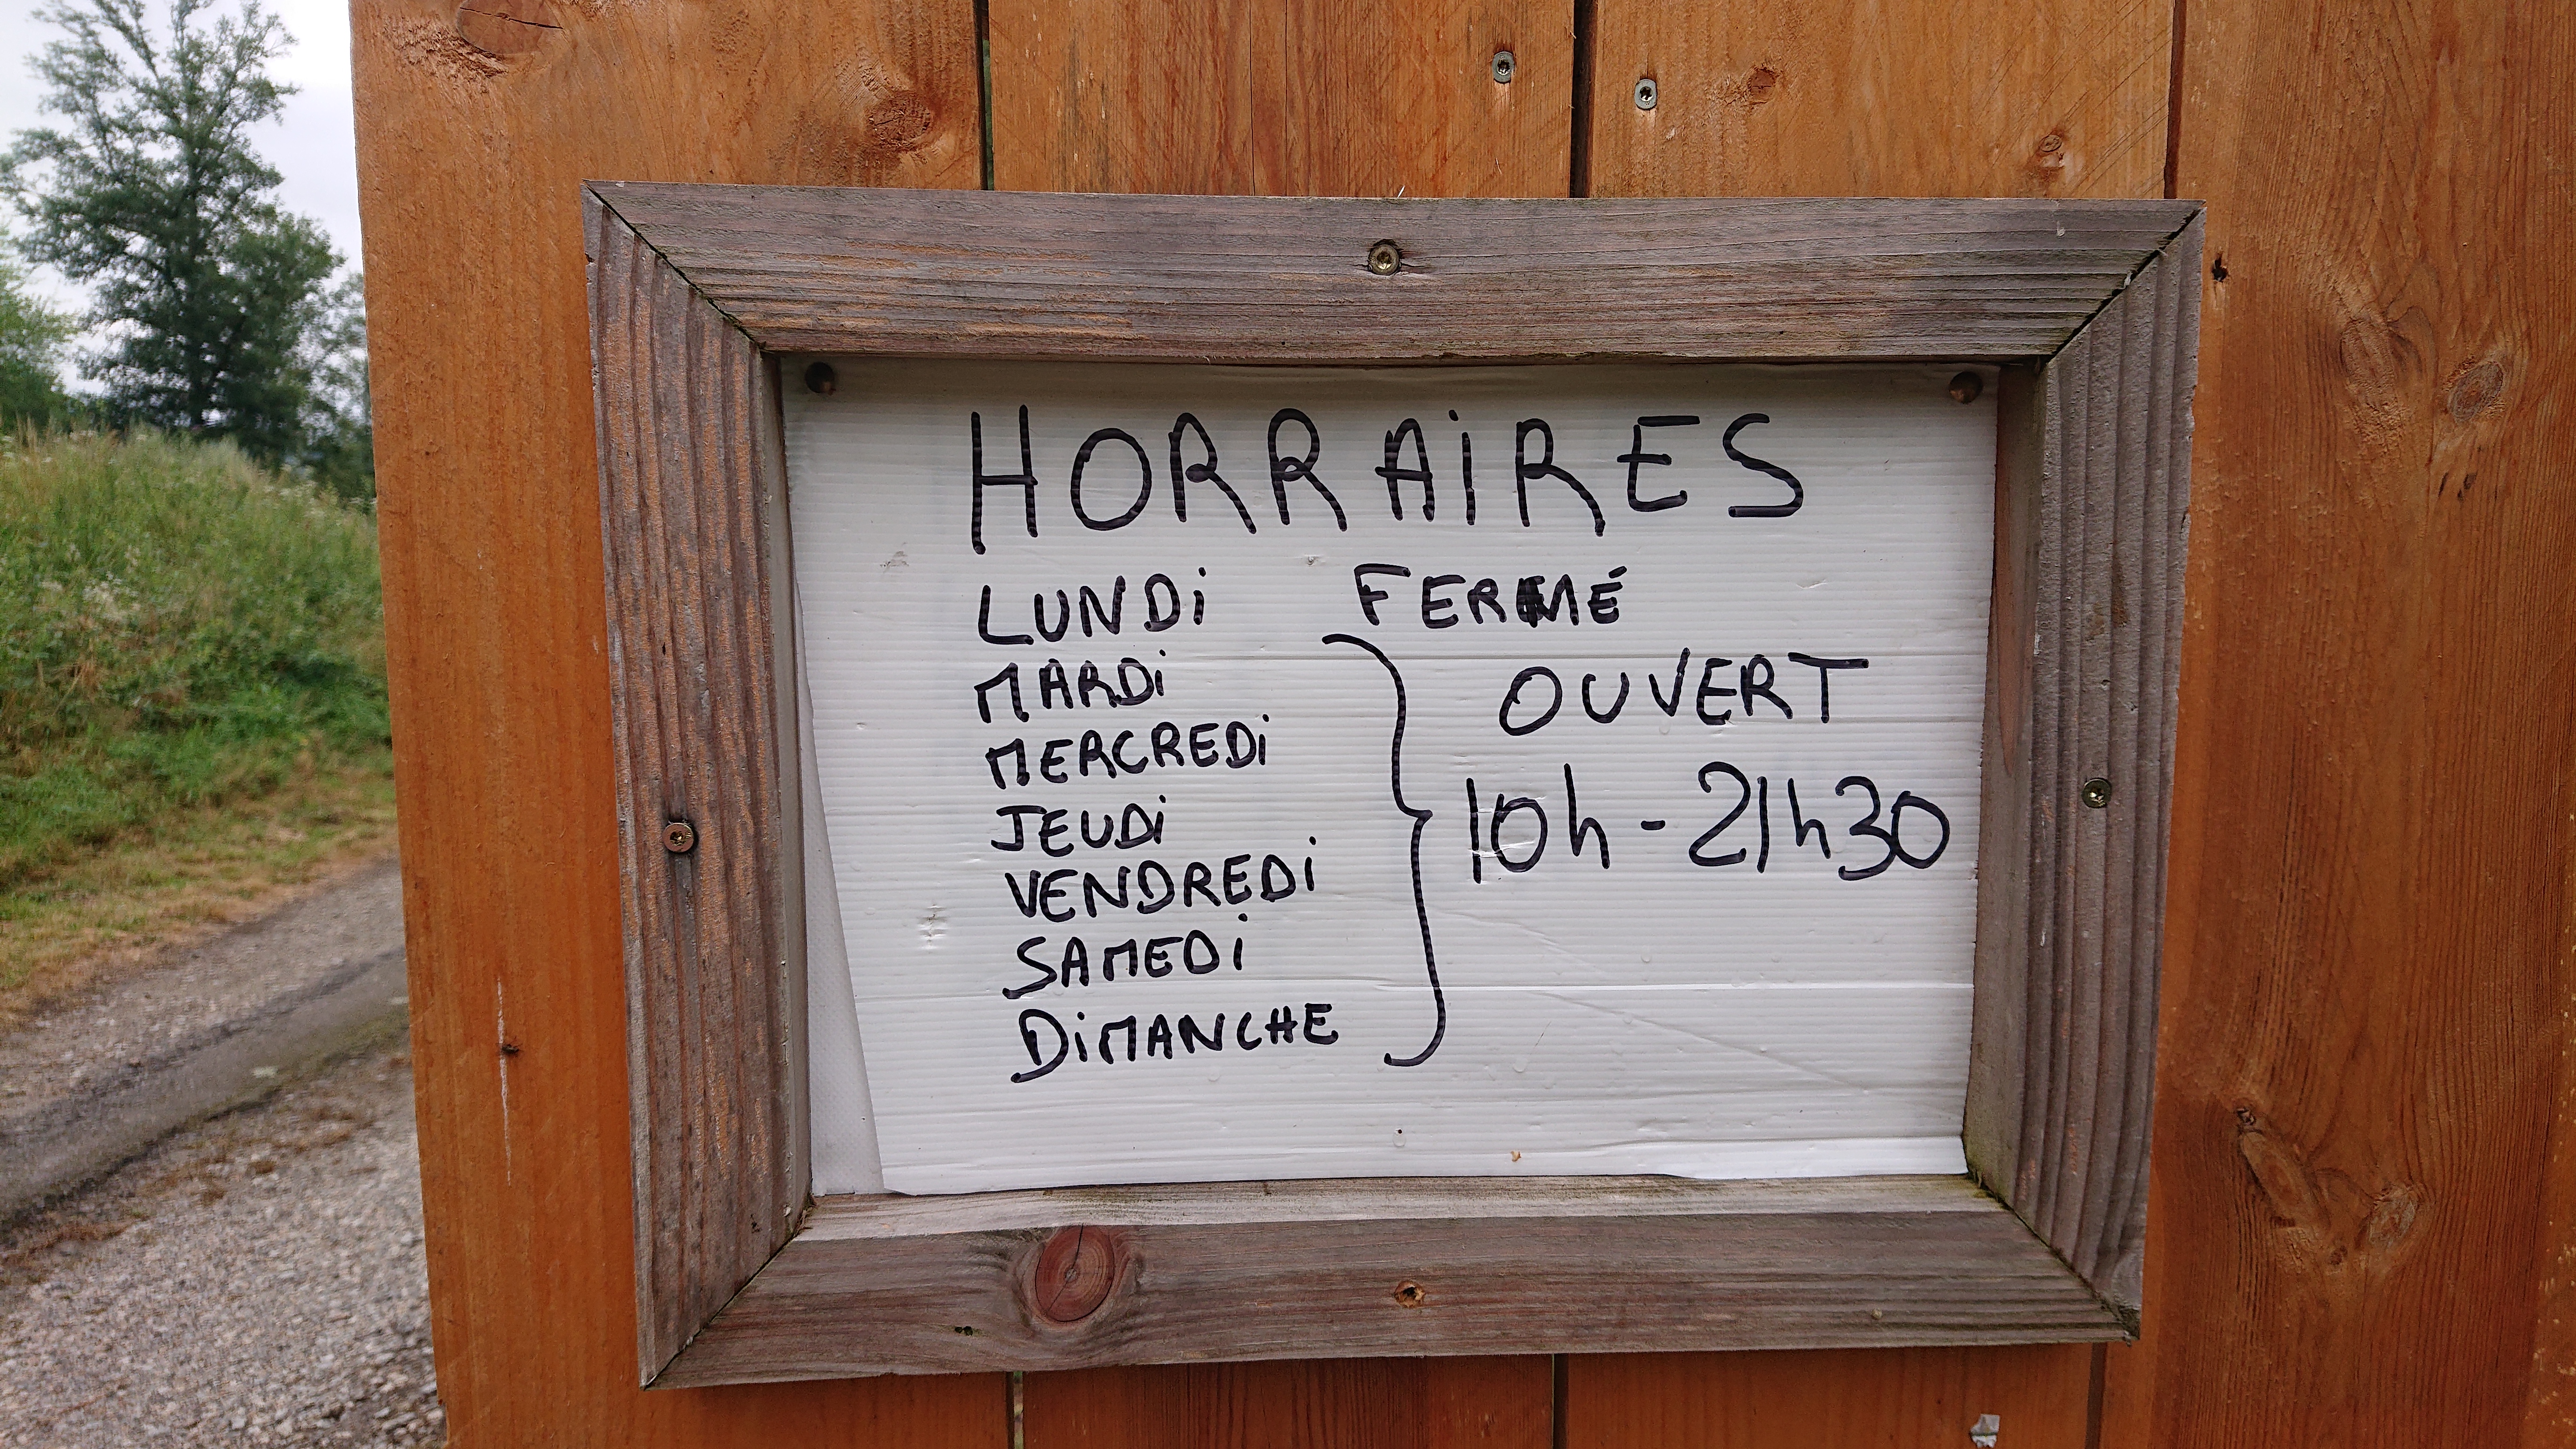 HORRAIRES
LUNDi FERMÉ
MARDi
MERCREDi
JEUDi
VENDREDi
SAMEDi
DiMANCHE
OUVERT
10h - 21h30